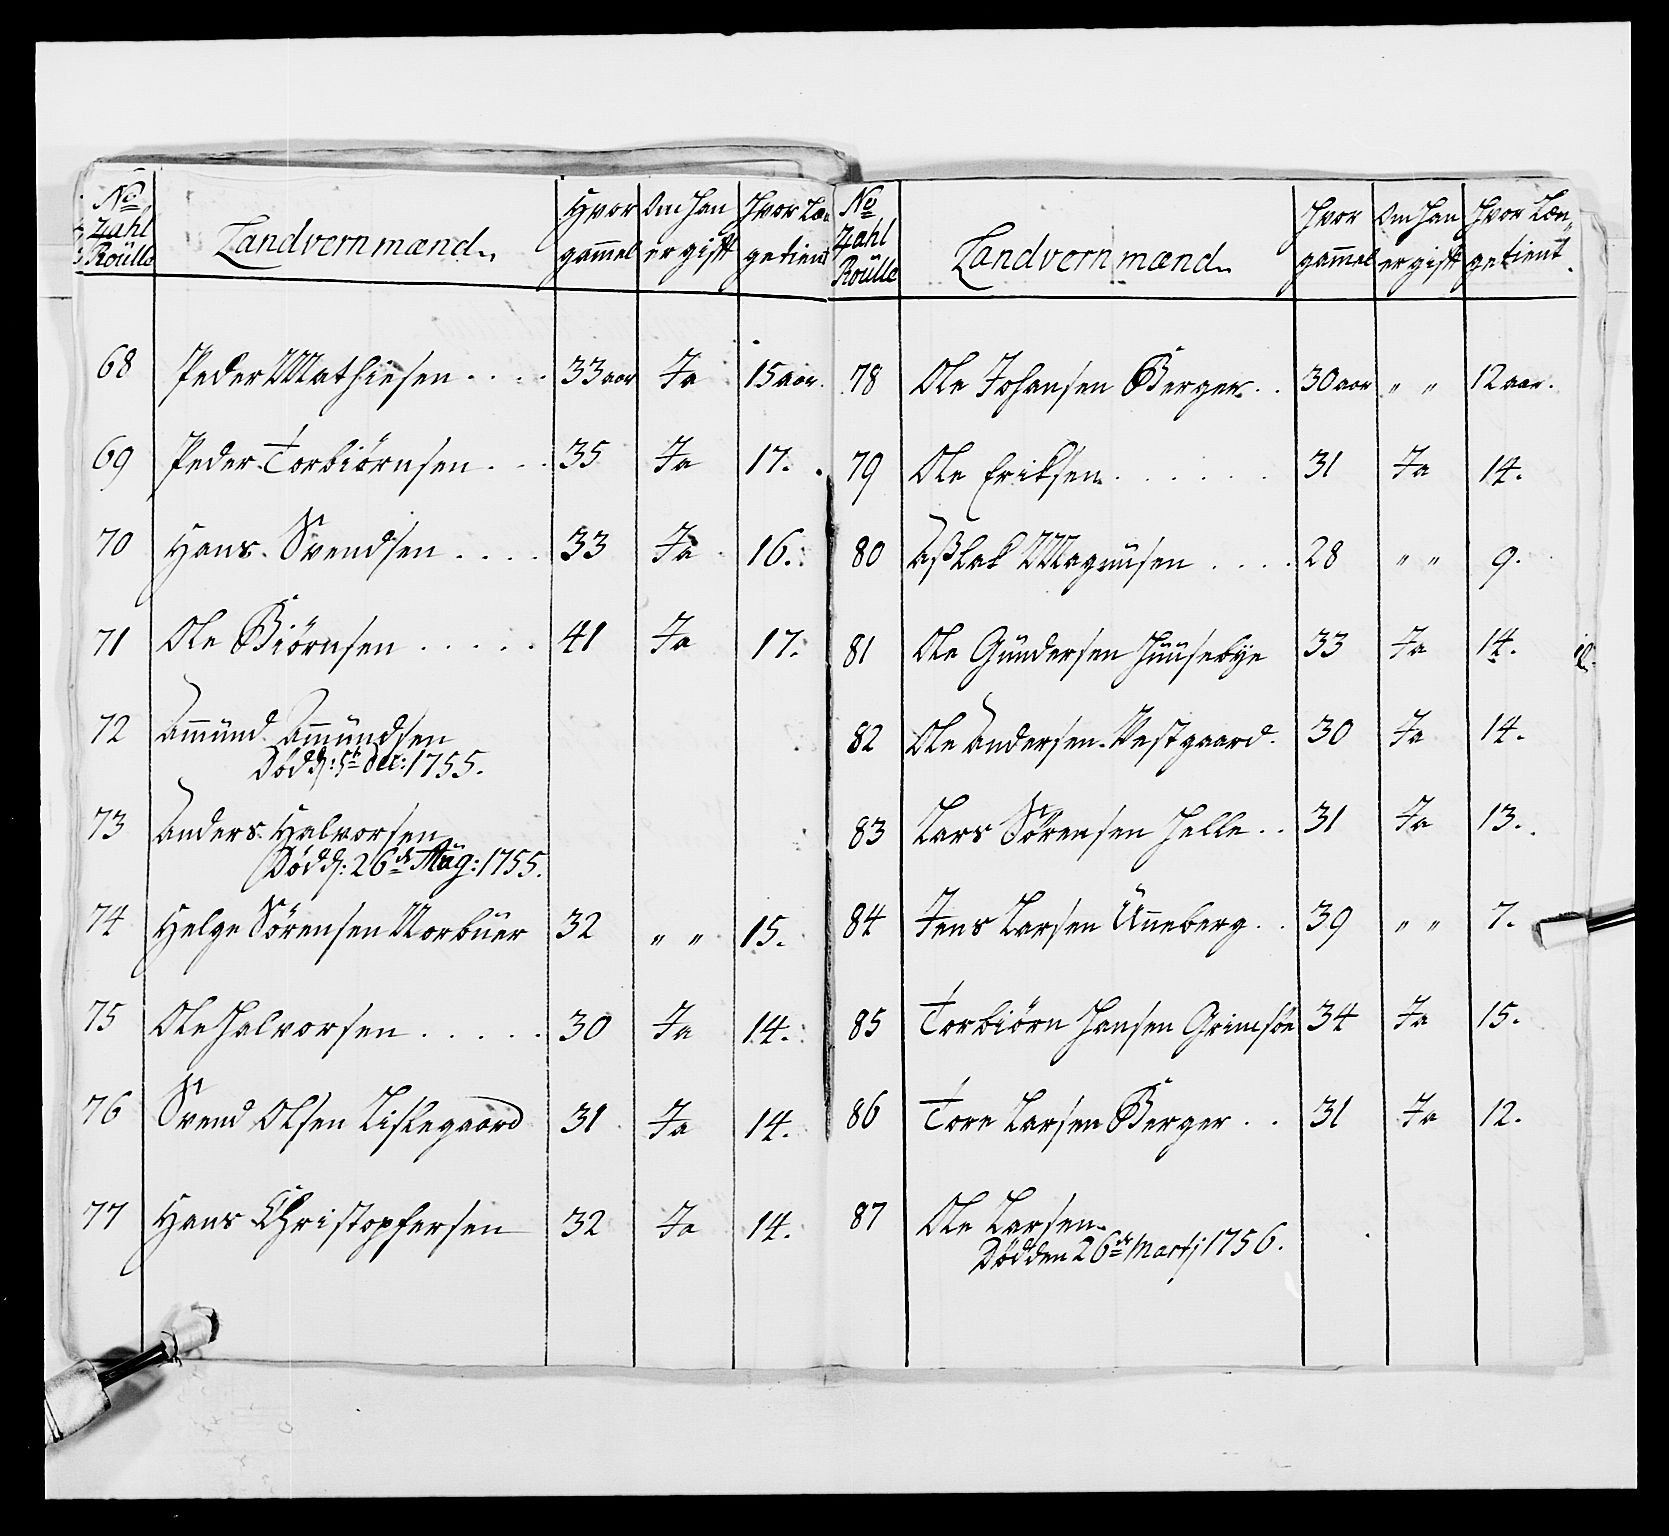 No
Zahl
Roülle
Landvernmænd.
Hvor
gam̄el
Om han
er gift
Hvor Læn
getient
68 Peder Mathiesen . . . . 33 aar Ja 15 aar.
69 Peder Torbiörnsen . . . 35 Ja 17.
70 Hans Svendsen . . . . 33 Ja 16.
71 Ole Biörnsen . . . . . 41 Ja 17.
72 Am̄ünd Am̄ündsen
Död d: 5te dec: 1755.
73 Anders Halvorsen
Död d: 26de Aüg: 1755.
74 Helge Sörensen Norbüer 32 " " 15.
75 Ole Halvorsen . . . . . 30 Ja 14.
76 Svend Olsen Lislegaard 31 Ja 14.
77 Hans Christopfersen 32 Ja 14.
No
Zahl
Roülle
Landvernmænd.
Hvor
gam̄el
Om Han
er gift
Hvor Læn„
getient.
78 Ole Johansen Berger . . 30 aar " " 12 aar.
79 Ole Eriksen . . . . . . 31 Ja 14.
80 Aßlak Magnüsen . . . . 28 " " 9.
81 Ole Gündersen Hüüsebye 33 Ja 14.
82 Ole Andersen Vestgaard. 30 Ja 14.
83 Lars Sörensen Helle . . 31 Ja 13.
84 Jens Larsen Ün̄eberg . . 39 " " 7.
85 Torbiörn Hansen Grimsöe 34 Ja 15.
86 Tore Larsen Berger . . 31 Ja 12.
87 Ole Larsen
Död den 26de Martj 1756.